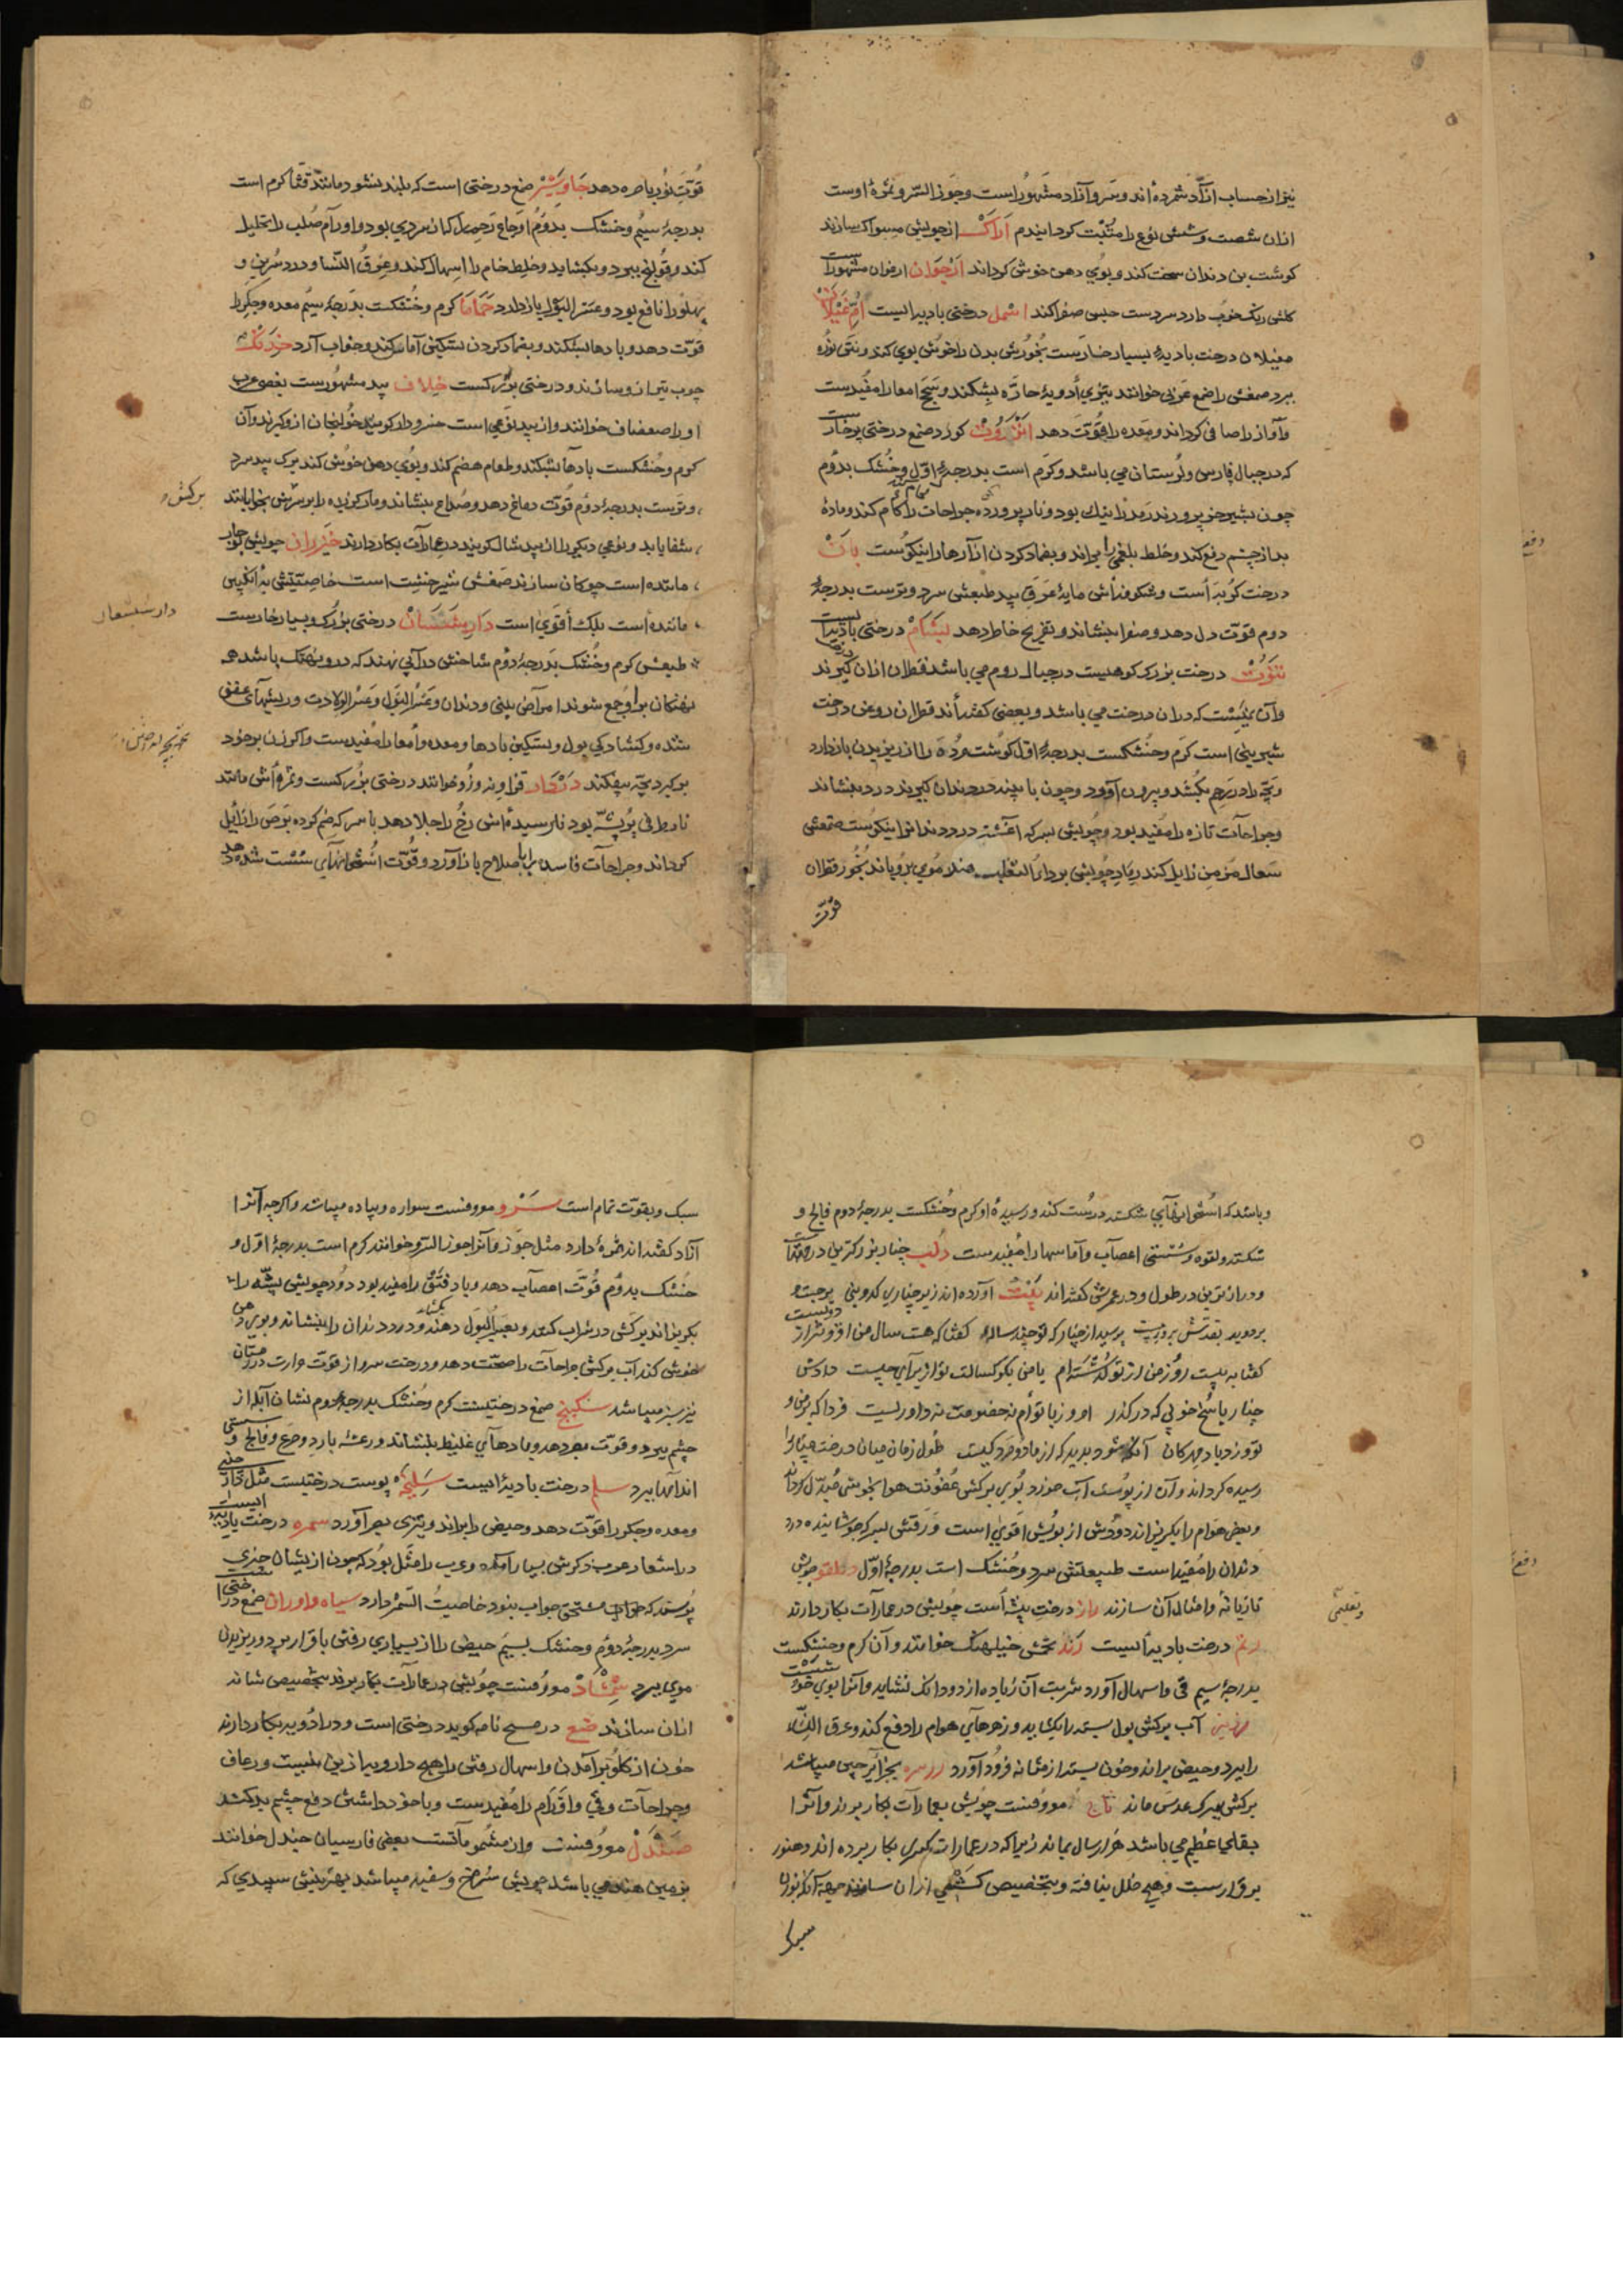 نیز از حساب آزاد شمرده‌اند و سرو آزاد مشهور است و جوز السرو ثمرهٔ اوست
ازان شصت و شش نوع را مثبت کردانیدم اراک از چوبش مسواک سازند
کوشت بن دندان سخت کند و بوی دهن خوش کرداند ارجوان ارغوان مشهور است
کلش رنک خوب دارد سردست حبس صفرا کند اسمل درختی بادیه‌ایست ام غیلان
مغیلان درخت بادیه بسیار خارست بخورش بدن را خوش بوی کند و نتن نوره
ببرد صمغش را صمغ عربی خوانند تیزی ادویهٔ حاره بشکند و سحج امعا را مفیدست
و آواز را صافی کرداند و معده را قوت دهد انزروت کورد صمغ درختی پرخارست
که در جبال فارس و لرستان می باشد و کرم است بدرجهٔ اول و خشک بدوم
چون بشیر خر پرورند رمد را نیک بود و نار پرورده جراحات را کام کند و مادهٔ
بد از چشم دفع کند و خلط بلغمی را براند و بضماد کردن ازآرها را نیکوست بان
درخت کوبه است و شکوفه‌اش مایهٔ عرق بید طبعش سرد و ترست بدرجهٔ
دوم قوت دل دهد و صفرا بنشاند و تفریح خاطر دهد بشکام درختی بادیه ایست
تنوب درخت بزرک کوهیست در جبال روم می باشد قطران ازان کیرند
و آن نیست که دران درخت می باشد و بعضی کفته‌اند قطران روغن درخت
شیربینی است کرم و خشکست بدرجهٔ اول کوشت مرده را از ریزیدن بازدارد
و بچه را در رحم بکشد و بیرون آورد و چون با پنبه در دندان کیرند درد بنشاند
و جراحات تازه را مفید بود و چوبش بسرکه آغشته درد دندان را نیکوست صمغش
سعال مزمن زایل کند رماد چوبش بر داء الثعلب ضماد موی برویاند بخور قطران
قوت
قوت نور باصره دهد جاوشیر صمغ درختی است که بلند نشود مانند قثا کرم است
بدرجهٔ سیم و خشک بدوم اوجاع رحم که از سردی بود و اورام صلب را تحلیل
کند و قولنج ببرد و بکشاید و خلط خام را اسهال کند و عرق النسا و درد سرین و
پهلو را نافع بود و عسر البول بازدارد حماما کرم و خشکست بدرجهٔ سیم معده و جکر را
قوت دهد و بادها بشکند و بضماد کردن تسکین آماس کند و خواب آرد خدنک
چوب تیر ازو سازند و درختی بزرکست خلاف بید مشهورست بعضی عرب
او را صفصاف خوانند و از بید نوعی است خسرودار کویند خولنجان ازو کیرند و آن
کرم و خشکست بادها بشکند و طعام هضم کند و بوی دهن خوش کند برک بید سرد
و ترست بدرجهٔ دوم قوت دماغ دهد و صداع بنشاند و مار کزیده را بر برکش بخوابانند
برکش
شفا یابد و نوعی دیکر را از بید شال کویند در عمارات بکار دارند خیزران چوبش
مانده است چوکان سازند صمغش شیرخشت است خاصیتش به انکبین
ماننده است بلک اقوی است دارشیشعان درختی بزرک و بسیار خارست
دار شیشعان
طبعش کرم و خشک بدرجهٔ دوم شاخش درآبی نهند که درو نهنک باشد همه
نهنکان برو جمع شوند امراض بینی و دندان و عسر البول و عسر الولادت و ریشهای عفن
شده و کشادکی بول و تسکین بادها و معده و امعا را مفیدست و اکر زن بر خود
بر کیرد بچه بیفکند دردار قرا و نه وزو خوانند درختی بزرکست و ثمره‌اش مانند
نارطرفی پر پشه بود نارسیده‌اش رخ را جلا دهد با سرکه ضم کرده برص را زایل
کرداند و جراحات فاسده را باصلاح بازآورد و قوت استخوانهای سست شده دهد
و باشد که استخوانهای شکسته درست کند و رسیدهٔ او کرم و خشکست بدرجهٔ دوم فالج و
شکسته و لقوه و سستی اعصاب و آماسها را مفیدست دلب چنار بزرکترین درختها
و درازترین در طول و در عمرش کفته‌اند بیت آورده‌اند زیر چناری کدوبنی برجست و
بر دوید بقدش بروز بیست پرسید از چنار که تو چند سالهٔ کفتا که هست سال من افزونتر از دویست
کفتا به بیست روز من از تو گذشته‌ام با من بکو کسالت تو از برای چیست دادش
چنار پاسخ خوبی که درکذر امروز با توام نه خصومت نه داوریست فردا که بر من و
تو وزد باد مهرکان آنکه شود پدید که از ما دو مرد کیست طول زمان میان درخت چنار را
رسیده کرداند و آن از پوست آب خورد بوی برکش عفونت هوا بخوشی مبدل کرداند
و بعضی هوام را بکریزاند دودش از بویش اقوی است ورقش بسرکه جوشانیده درد
دندان را مفید است طبیعتش سرد و خشک است بدرجهٔ اول دلقو چوبش
تازیانه و امثال آن سازند ران درخت پشه است چوبش در عمارات بکار دارند
رتم درخت بادیه‌ایست رند تخمش حنیلهنک خوانند و آن کرم و خشکست
بدرجهٔ سیم قی و اسهال آورد شربت آن زیاده از دو دانک نشاید و آنرا بوی خوشست
آب برکش بول بسته را بکشاید و زهرهای هوام را دفع کند و عرق النسا
را ببرد و حیض براند و خون بسته از مثانه فرود آورد زرسره بجزائر چین میباشد
برکش ببرک عدس ماند ساج معروفست چوبش بعمارات بکار برند و آنرا
بقای عظیم می باشد هزار سال بماند زیرا که در عمارات کسری بکار برده اند و هنوز
برقرارست و هیچ خلل نیافته و بتخصیص کشتی ازان سازند جهت آنکه بوزن
سبک
سبک و بقوت تمام است سرو معروفست سواره و پیاده میباشد و اکرچه آنرا
آزاد کفته‌اند ثمرهٔ دارد مثل جوز و آنرا جوز السرو خوانند کرم است بدرجهٔ اول و
خشک بدوم قوت اعصاب دهد و باد فتق را مفید بود دود چوبش پشه را
بکریزاند برکش در شراب کنند و بعسر البول دهند بکشاید و درد دندان را بنشاند و بوی دهن
خوش کند آب برکش جراحات را صحت دهد و درخت سرو از قوت حرارت در زمستان
نیز سبز میباشد سکبینج صمغ درختیست کرم و خشک بدرجهٔ دوم نشان آبله از
چشم ببرد و قوت بصر دهد و بادهای غلیظ بنشاند و رعشه بارد و صرع و فالج و سستی
اندامها ببرد سلم درخت بادیه‌ایست سلیخه پوست درختیست مثل دارچینی
و معده و جکر را قوت دهد و حیض را براند و تیزی بصر آورد سمره درخت بادیه ایست
در اشعار عرب ذکرش بسیار آمده و عرب را مثل بود که چون از بیشان چیزی
پرسند که جواب مستحق جواب بنود خاصیت السمر دارد سیاه داوران صمغ درختی است
سرد بدرجهٔ دوم و خشک بسیم حیض را از بسیاری رفتن باقرار برد و ریزیدن
موی ببرد شمشاد معروفست چوبش در عمارات بکار برند بتخصیص شانه
ازان سازند ضبع در مسیح نامه کوید درختی است و در ادویه بکار دارند
خون از کلو برآمدن و اسهال رفتن را هیچ دارو به ازین نیست و رعاف
و جراحات و قی و اورام را مفیدست و با خود داشتن دفع چشم بد کند
صندل معروفست و از مشمومآتست بعضی فارسیان چندل خوانند
بزمین هند می باشد چوبش سرخ و سفید میباشد بهترینش سپیدی که